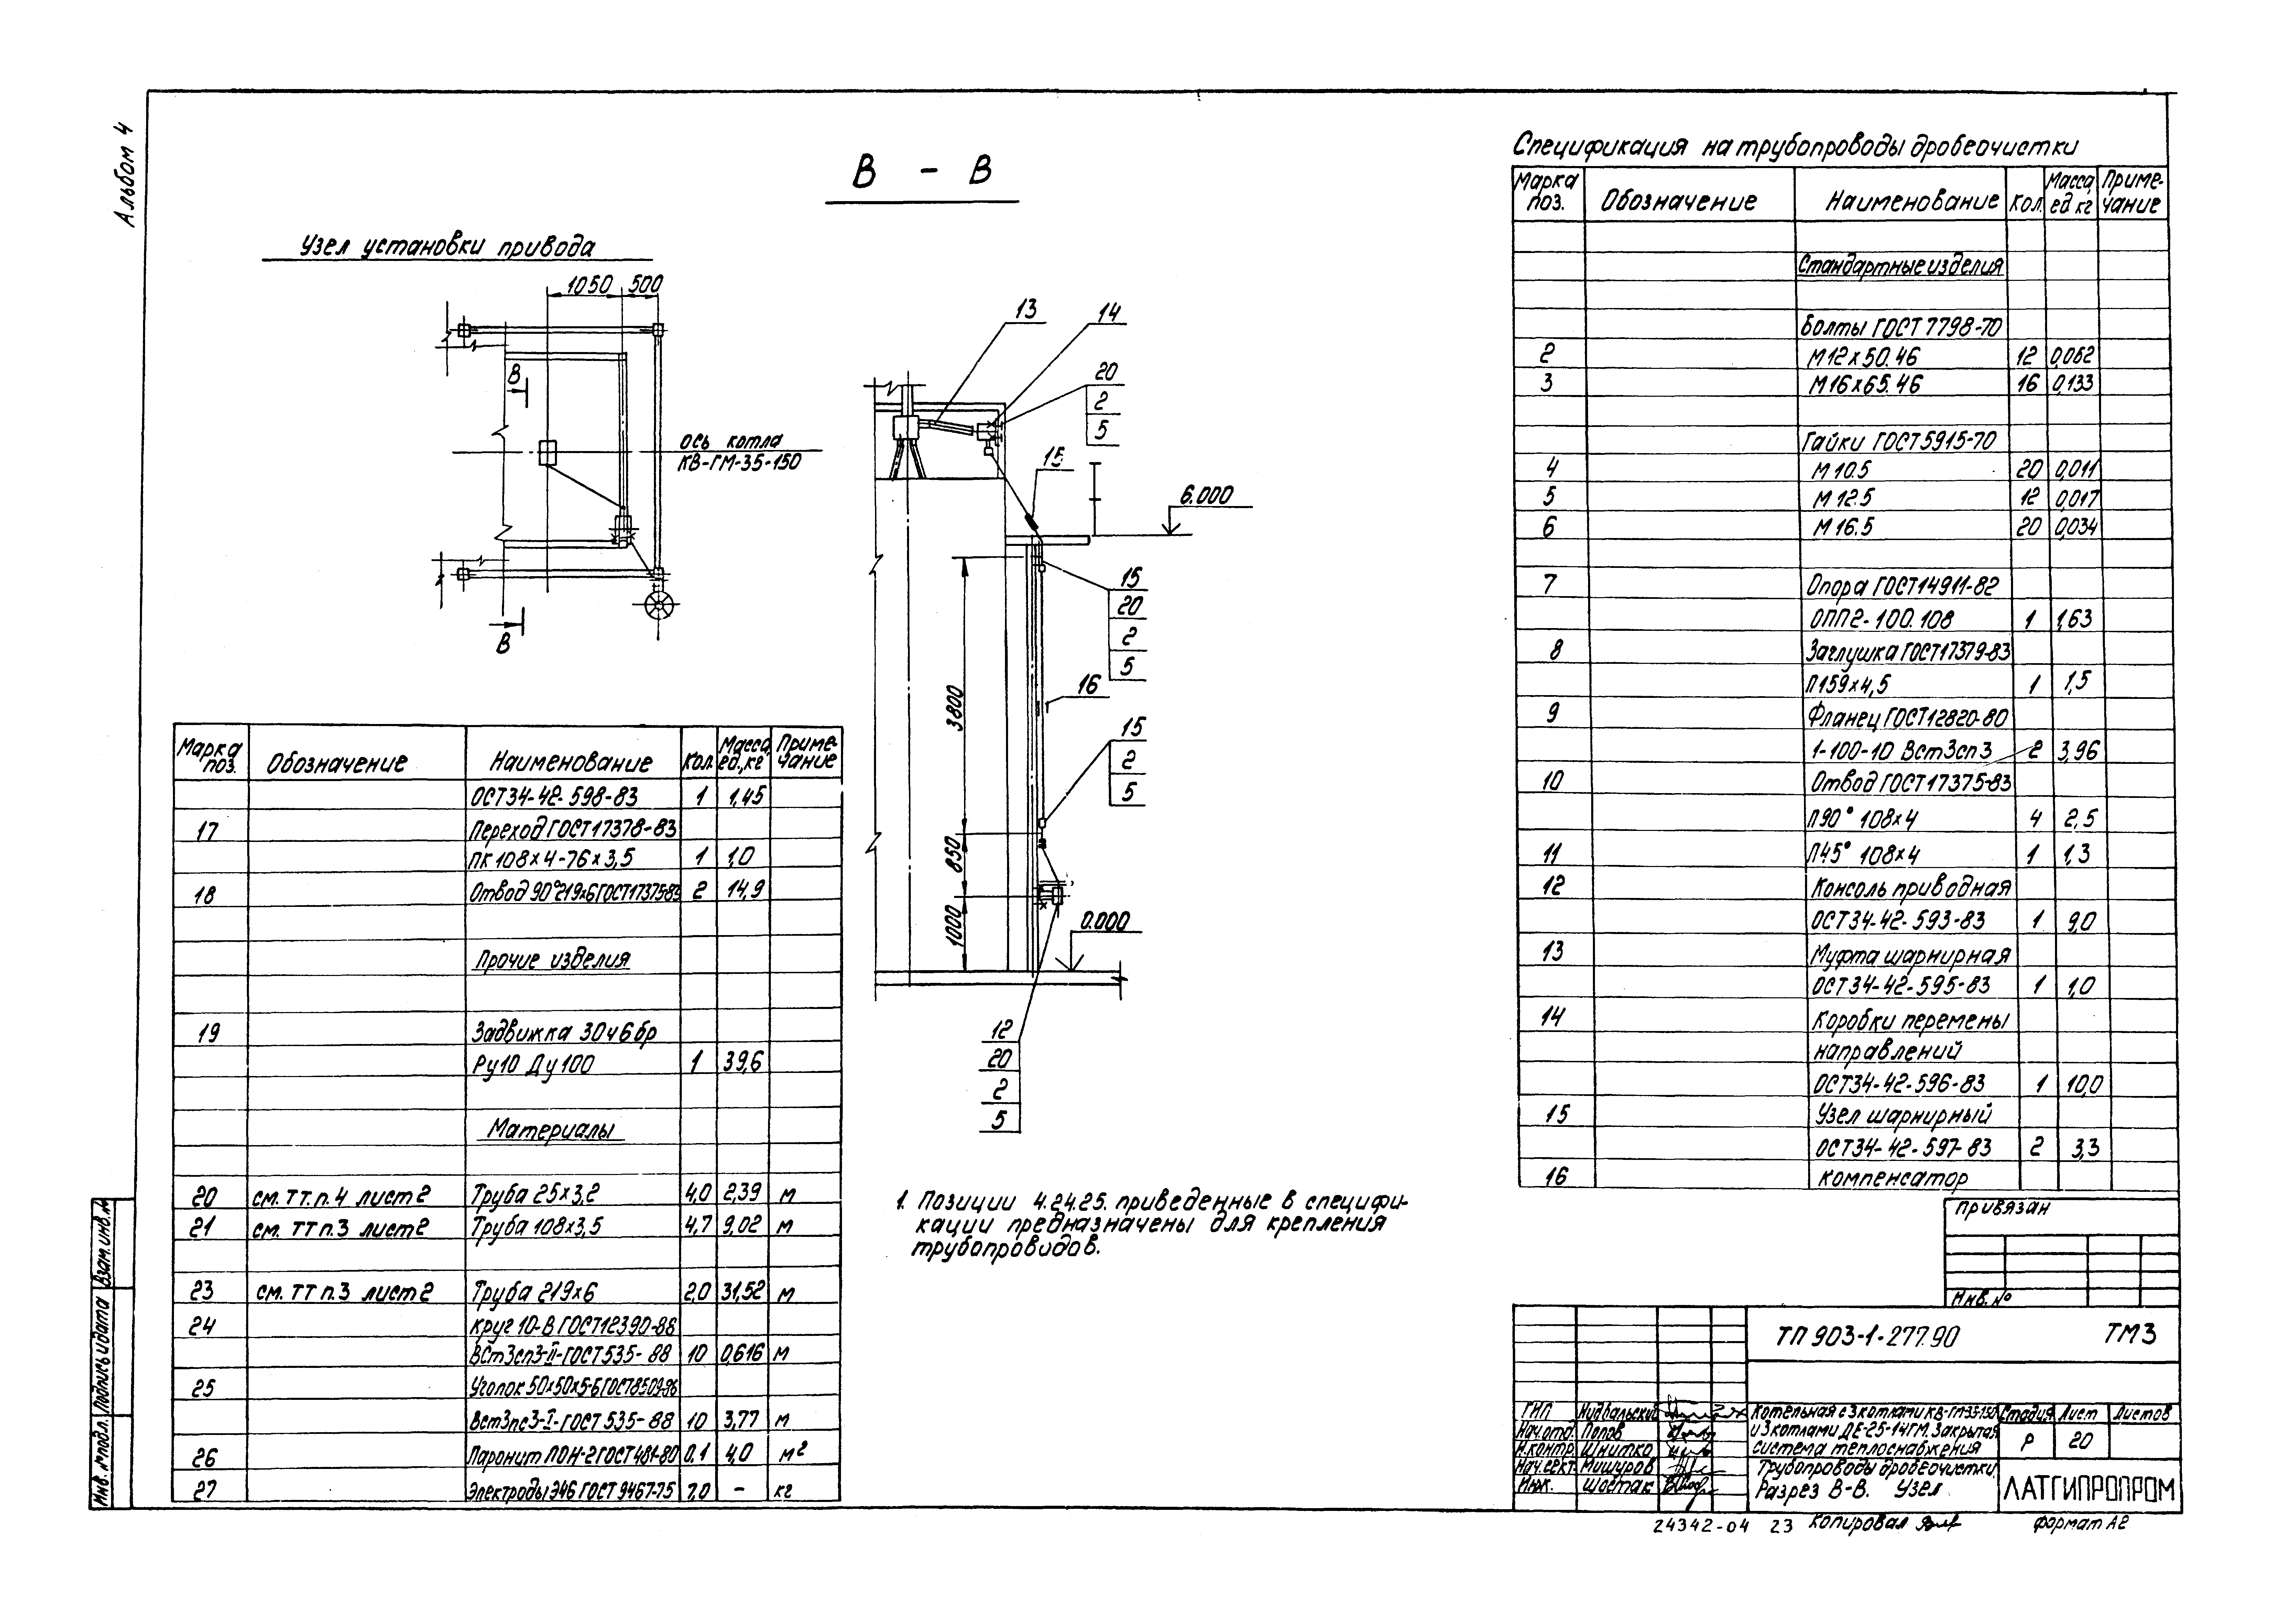 Альбом 4
В - В
Узел установки привода
1050 500
В
ось котла
КВ-ГМ-35-150
В
13 14
20
2
5
15
6.000
15
20
2
5
16
3800
15
2
5
850
1000
0.000
12
20
2
5
Марка поз. Обозначение Наименование Кол. Масса ед., кг Приме-чание
ОСТ34-42-598-83 1 1,45
17 Переход ГОСТ17378-83
ПК 108х4-76х3,5 1 1,0
18 Отвод 90° 219х6 ГОСТ17375-83 2 14,9
Прочие изделия
19 Задвижка 30ч6бр
Ру10 Ду100 1 39,6
Материалы
20 см. ТТ.п.4 лист 2 Труба 25х3,2 4,0 2,39 м
21 см. ТТ п.3 лист 2 Труба 108х3,5 4,7 9,02 м
23 см. ТТ п.3 лист 2 Труба 219х6 2,0 31,52 м
24 Круг 10-В ГОСТ12390-88
ВСт3сп3-II-ГОСТ535-88 10 0,616 м
25 Уголок 50х50х5-Б ГОСТ8509-86
Вст3пс3-I-ГОСТ 535-88 10 3,77 м
26 Паронит ПОН-2 ГОСТ 481-80 0,1 4,0 м²
27 Электроды Э46 ГОСТ 9467-75 7,0 - кг
1. Позиции 4.24.25. приведенные в специфи-
кации предназначены для крепления
трубопроводов.
Спецификация на трубопроводы дробеочистки
Марка поз. Обозначение Наименование Кол. Масса, ед кг Приме-чание
Стандартные изделия
Болты ГОСТ 7798-70
2 М12х50.46 12 0,062
3 М16х65.46 16 0,133
Гайки ГОСТ 5915-70
4 М10.5 20 0,011
5 М12.5 12 0,017
6 М16.5 20 0,034
7 Опора ГОСТ14911-82
ОПП2-100.108 1 1,63
8 Заглушка ГОСТ17379-83
П159х4,5 1 1,5
9 Фланец ГОСТ12820-80
1-100-10 Вст3сп3 2 3,96
10 Отвод ГОСТ17375-83
П90° 108х4 4 2,5
11 П45° 108х4 1 1,3
12 Консоль приводная
ОСТ34-42-593-83 1 9,0
13 Муфта шарнирная
ОСТ34-42-595-83 1 1,0
14 Коробки перемены
направлений
ОСТ34-42-596-83 1 10,0
15 Узел шарнирный
ОСТ34-42-597-83 2 3,3
16 Компенсатор
Привязан
Инв. №
ТП 903-1-277.90 ТМ3
ГИП Нидбальский
Нач.отд. Попов
Н.контр. Шнитко
Нач.сект. Мишуров
Инж. Шостак
Котельная с 3 котлами КВ-ГМ-35-150
и 3 котлами ДЕ-25-14ГМ. Закрытая
система теплоснабжения
Стадия Лист Листов
Р 20
Трубопроводы дробеочистки.
Разрез В-В. Узел
ЛАТГИПРОПРОМ
24342-04 23 Копировал Формат А2
Взам. инв. №
Подпись и дата
Инв. № подл.